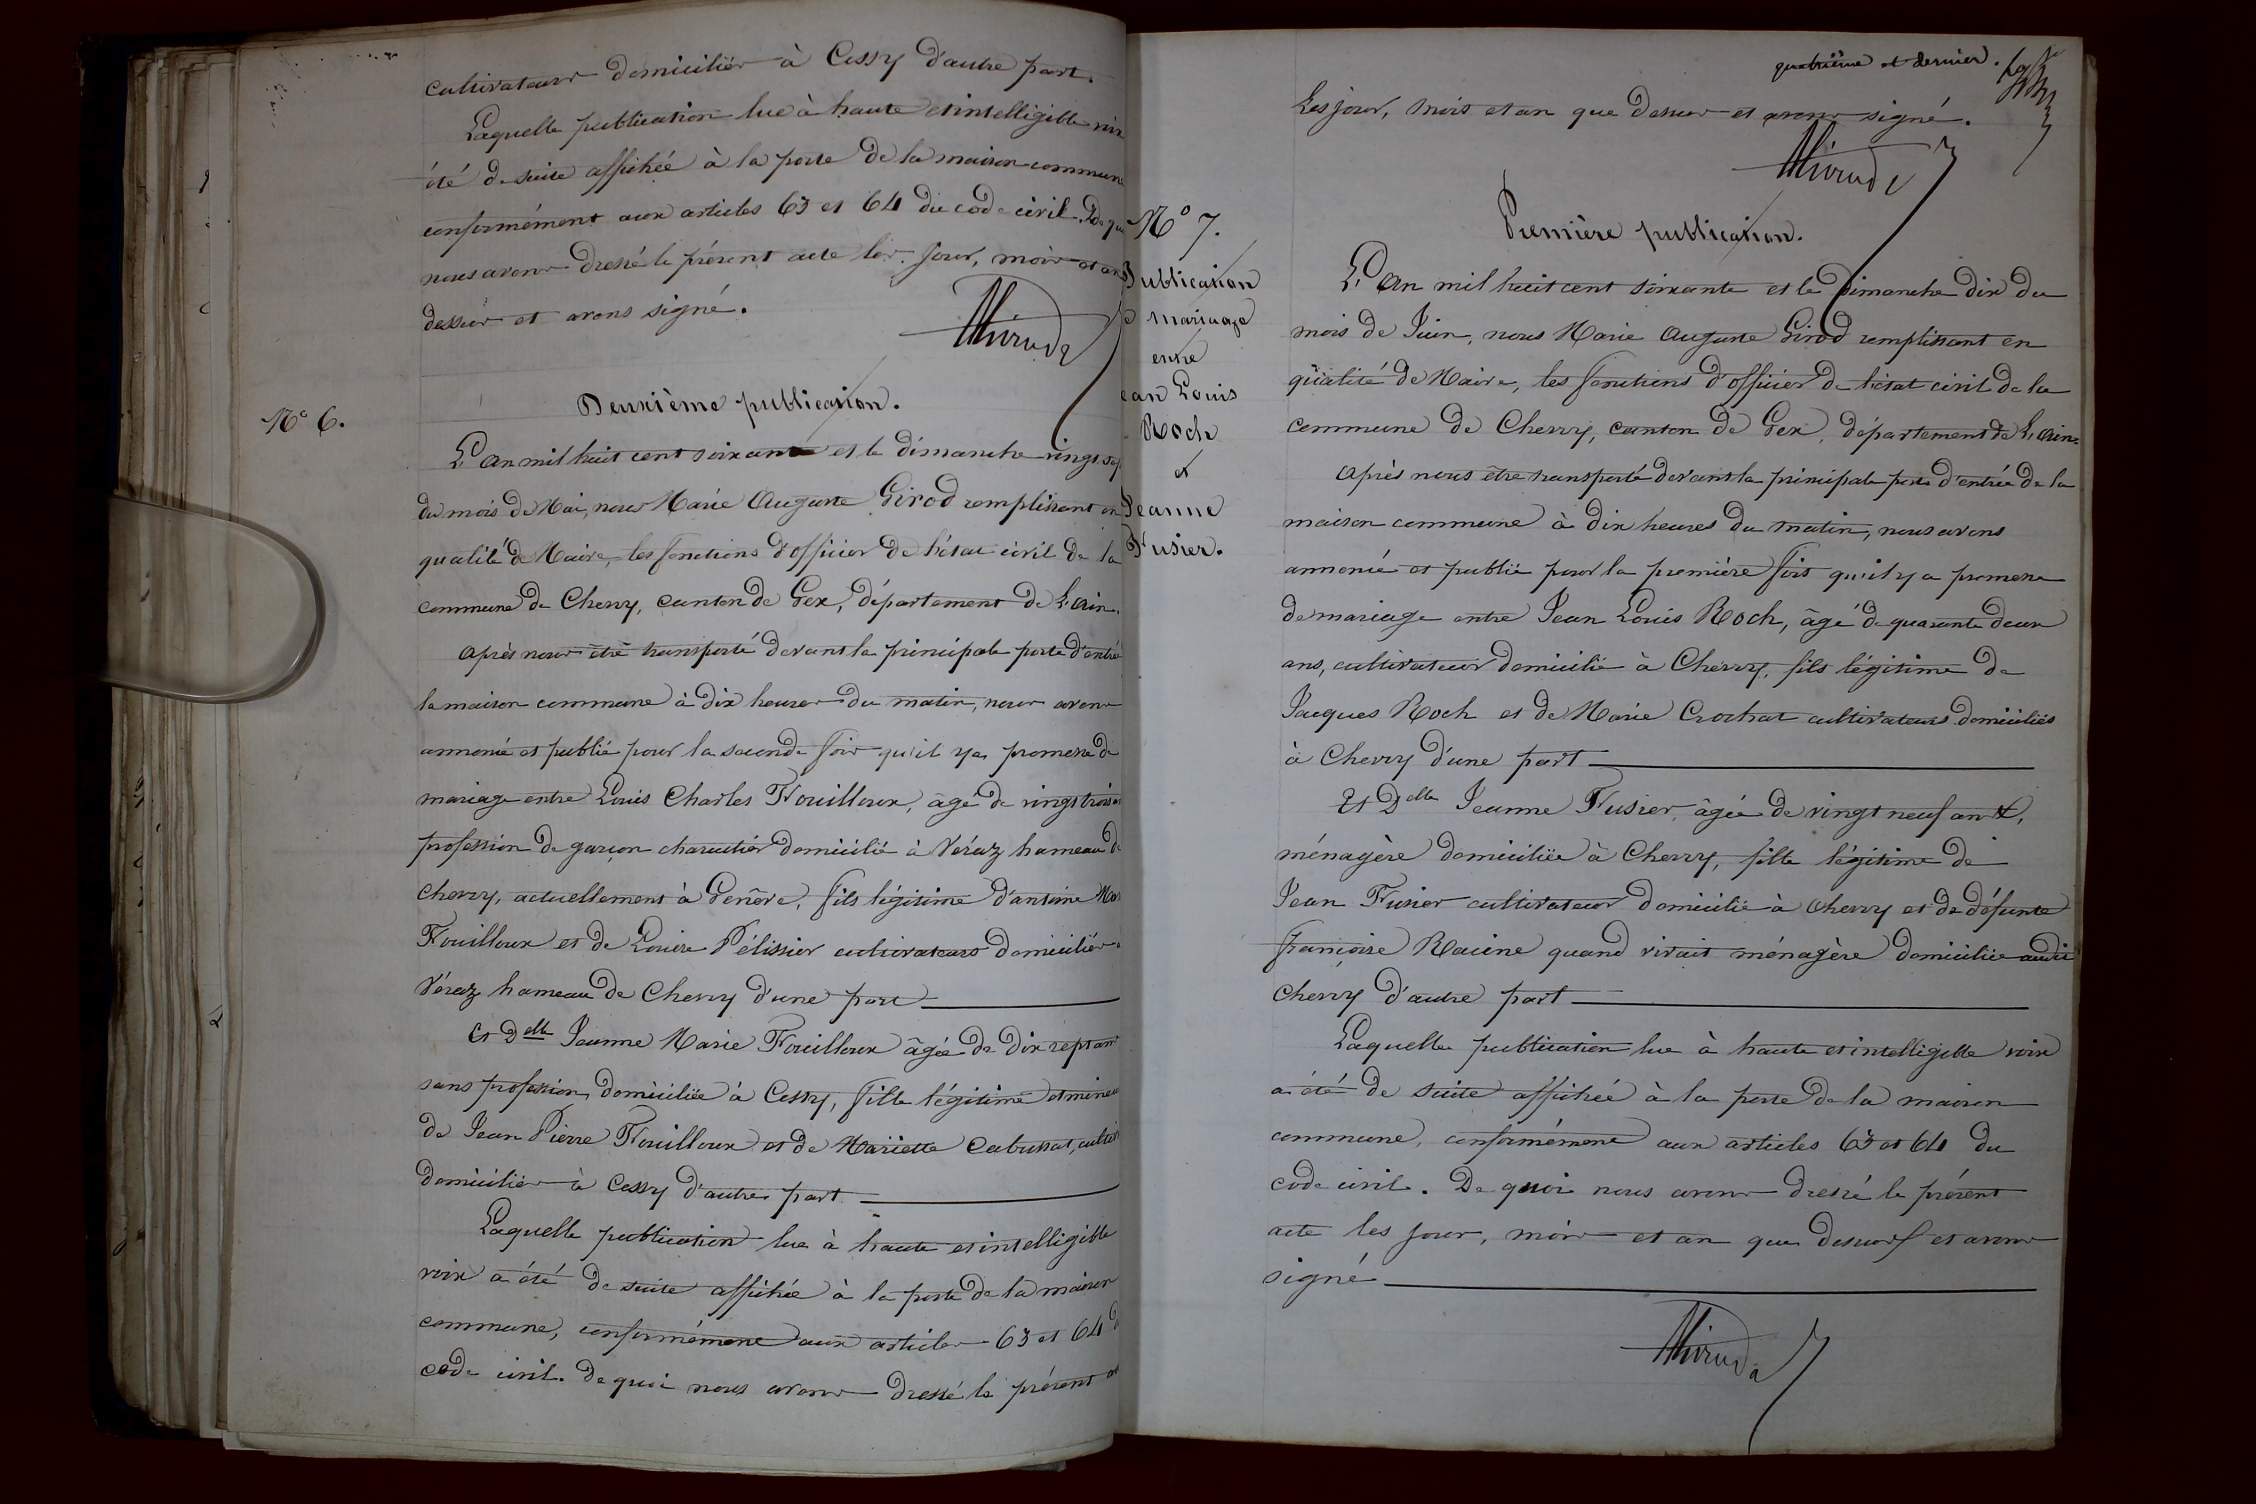 cultivateurs domiciliés à Cessy d'autre part.
Laquelle publication lue à haute et intelligible
été de suite affichée à la porte de la maison commune
conformément aux articles 63 et 64 du code civil. De
nous avons dressé le présent acte les jour, mois et an
dessus et avons signé.
Deuxième publication.
N° 6.
L'an mil huit cent soixante et le dimanche vingt sep
du mois de Mai, nous Marie Auguste Girod remplissant en
qualité de Maire, les fonctions d'officier de l'état civil de la
commune de Chevry, canton de Gex, département de L'ain.
Après nous être transporté devant la principale porte d'entrée
la maison commune à dix heures du matin, nous avons
annoncé et publié pour la seconde fois qu'il y a promesse de
mariage entre Louis Charles Fouilloux, âgé de vingt trois
profession de garçon charcutier domicilié à Véraz hameau de
Chevry, actuellement à Genève, fils légitime d'antime
Fouilloux et de Louise Pélissier cultivateurs domiciliés
Véraz hameau de Chevry d'une part
Et Delle Jeanne Marie Fouilloux âgée de dix sept ans
sans profession, domiciliée à Cessy, fille légitime et mineu
de Jean Pierre Fouilloux et de Mariette Cabussat, cultiv
domiciliés à Cessy d'autre part
Laquelle publication lue à haute et intelligible
voix a été de suite affichée à la porte de la maison
commune, conformément aux articles 63 et 64 d
code civil. De quoi nous avons dressé le présent
quatrième et dernier.
Les jour, mois et an que dessus et avons signé.
N° 7.
Publication
mariage
entre
ean Louis
Roch
et
Jeanne
Fusier.
Première publication.
L'an mil huit cent soixante et le dimanche dix du
mois de Juin, nous Marie Auguste Girod remplissant en
qualité de Maire, les fonctions d'officier de l'état civil de la
commune de Chevry, canton de Gex, département de L'ain.
Après nous être transporté devant la principale porte d'entrée de la
maison commune à dix heures du matin, nous avons
annoncé et publié pour la première fois qu'il y a promesse
de mariage entre Jean Louis Roch, âgé de quarante deux
ans, cultivateur domicilié à Chevry, fils légitime de
Jacques Roch et de Marie Crochat cultivateurs domiciliés
à Chevry d'une part
Et Delle Jeanne Fusier, âgée de vingt neuf ans,
ménagère domiciliée à Chevry, fille légitime de
Jean Fusier cultivateur domicilié à Chevry et de défunte
françoise Racine quand vivait ménagère domiciliée audit
Chevry d'autre part
Laquelle publication lue à haute et intelligible voix
a été de suite affichée à la porte de la maison
commune, conformément aux articles 63 et 64 du
code civil. De quoi nous avons dressé le présent
acte les jour, mois et an que dessus et avons
signé